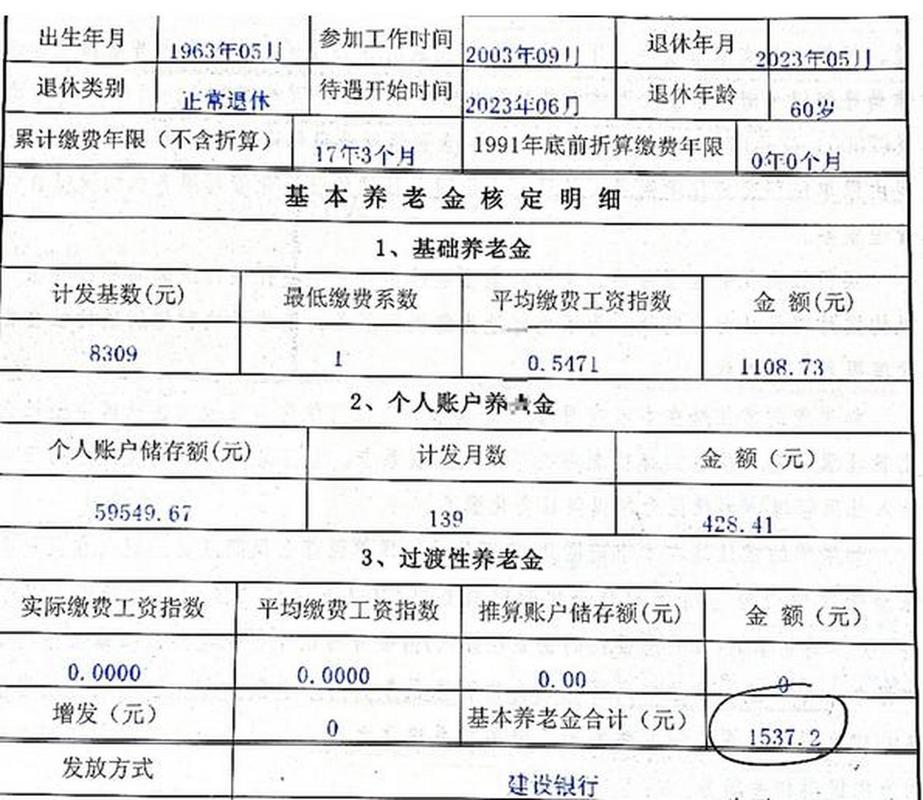 出生年月 1963年05月 参加工作时间 2003年09月 退休年月 2023年05月
退休类别 正常退休 待遇开始时间 2023年06月 退休年龄 60岁
累计缴费年限（不含折算） 17年3个月 1991年底前折算缴费年限 0年0个月
基本养老金核定明细
1、基础养老金
计发基数(元) 最低缴费系数 平均缴费工资指数 金 额(元)
8309 1 0.5471 1108.73
2、个人账户养老金
个人账户储存额(元) 计发月数 金 额（元）
59549.67 139 428.41
3、过渡性养老金
实际缴费工资指数 平均缴费工资指数 推算账户储存额(元) 金 额（元）
0.0000 0.0000 0.00 0
增发（元） 0 基本养老金合计（元） 1537.2
发放方式 建设银行